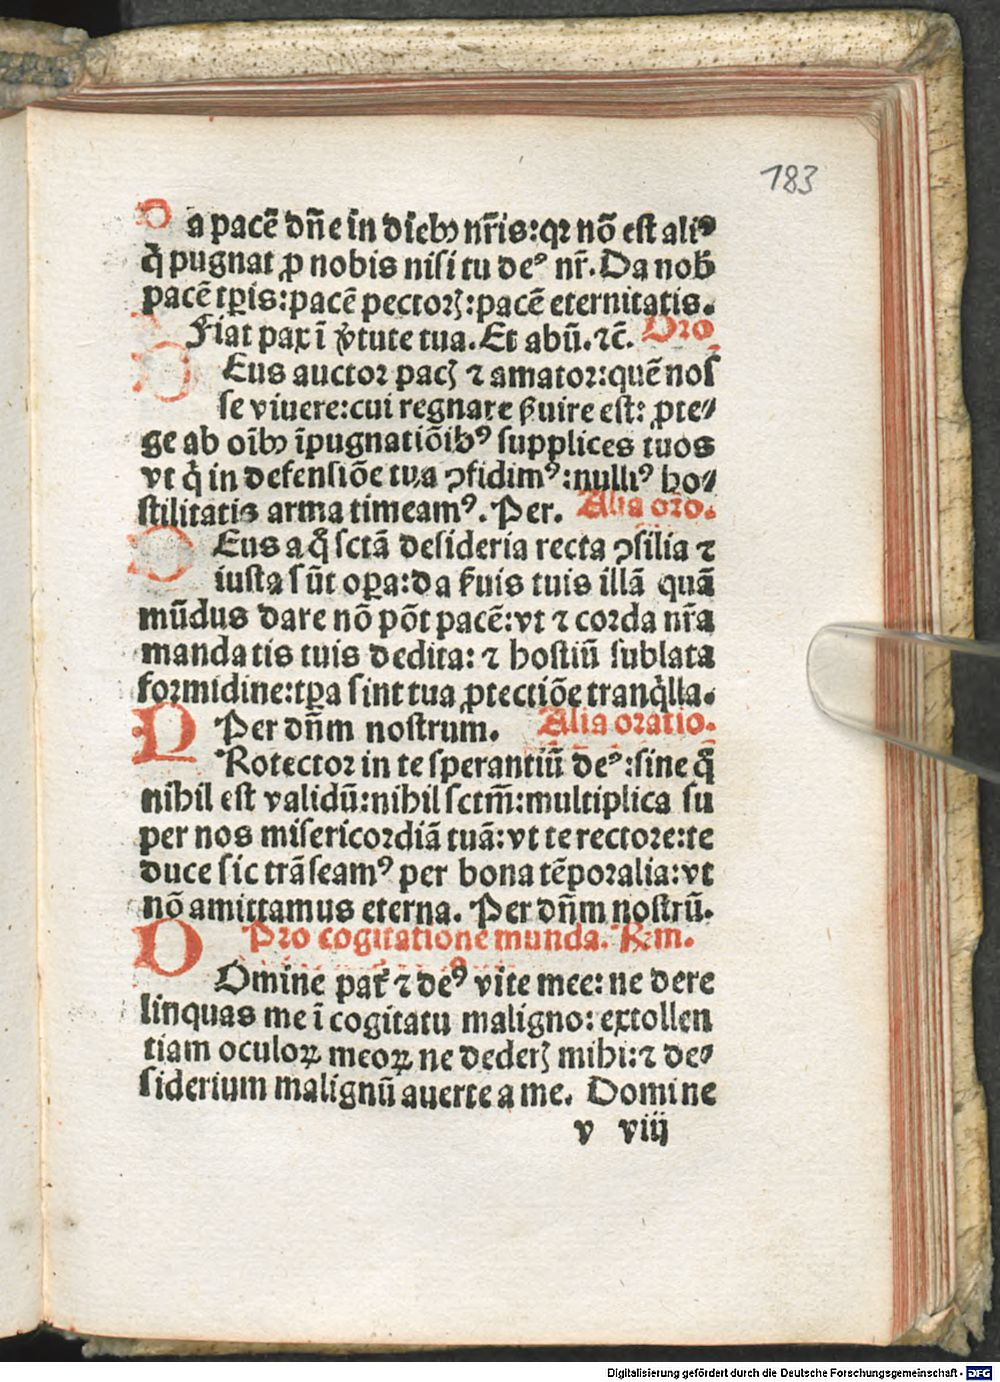 183
Da pacē dn̄e in diebꝫ nr̄is:qꝛ nō est aliꝰ
q̇ pugnat ꝓ nobis nisi tu deꝰ nr̄. Da nob̄
pacē tp̄is:pacē pectoꝝ:pacē eternitatis.
Fiat pax ī v̓tute tua. Et abū. ⁊c̄. Oro
DEus auctoꝛ pacꝭ ⁊ amatoꝛ:quē nos
se viuere:cui regnare ẜuire est: ꝓte⸗
ge ab oībꝫ īpugnatiōibꝰ supplices tuos
vt q̇ in defensiōe tua ꝯfidimꝰ:nulliꝰ ho⸗
stilitatis arma timeamꝰ. Per. Alia oꝛo.
DEus a q̊ sctā desideria recta ꝯsilia ⁊
iusta sūt oꝑa:da ẜuis tuis illā quā
mūdus dare nō pōt pacē:vt ⁊ coꝛda nr̄a
mandatis tuis dedita: ⁊ hostiū sublata
foꝛmidine:tꝑa sint tua ꝓtectiōe tranq̇lla.
Per dn̄m nostrum. Alia oꝛatio.
PRotectoꝛ in te sperantiū deꝰ:sine q̊
nihil est validū:nihil sctm̄:multiplica su
per nos misericoꝛdiā tuā:vt te rectoꝛe:te
duce sic trāseamꝰ per bona tēpoꝛalia:vt
nō amittamus eterna. Per dn̄m nostrū.
Pꝛo cogitatione munda. Rm.
DOmine pat̄ ⁊ deꝰ vite mee: ne dere
linquas me ī cogitatu maligno: extollen
tiam oculoꝝ meoꝝ ne dederꝭ mihi:⁊ de⸗
siderium malignū auerte a me. Domine
v viij
Digitalisierung gefördert durch die Deutsche Forschungsgemeinschaft - DFG